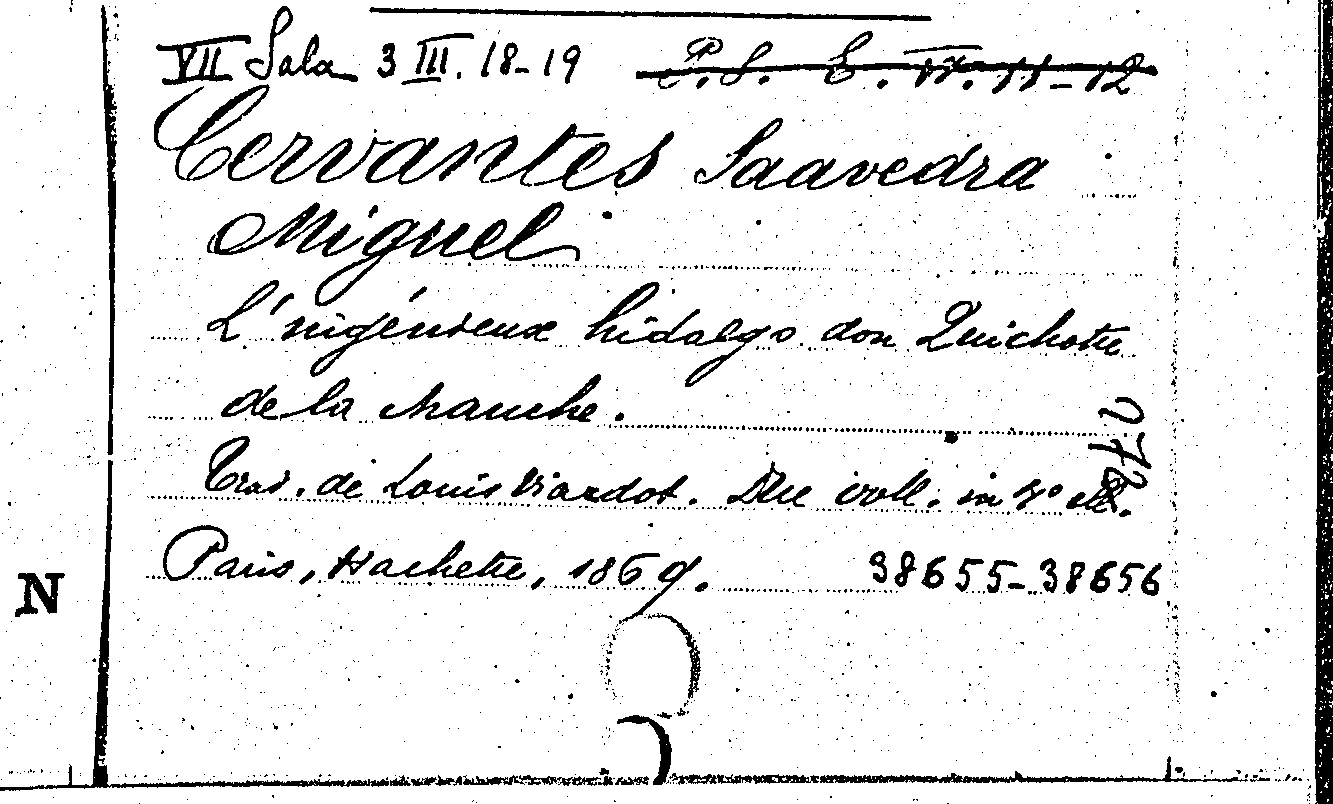 VII Sala 3 III. 18-19 P. S. E. VI. 11-12
Cervantes Saavedra
Miguel
L'ingénieux hidalgo don Quichotte
de la Manche.
Trad. de Louis Viardot. Due voll. in
Paris, Hachette, 1869. 38655-38656
N